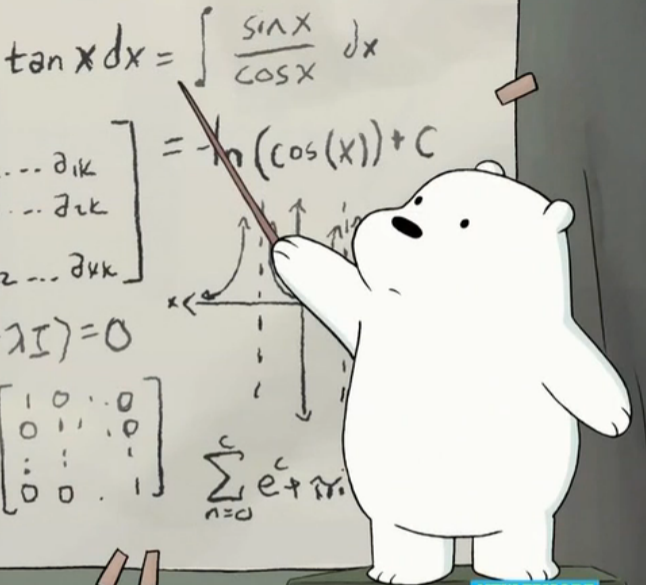 tan x dx = ∫ sin x / cos x dx
= -ln (cos(x)) + C
... a1k
... a2k
2 ... akk
x
λI) = 0
1 0 . . 0
0 1 1 . . 0
: : :
0 0 . 1
c Σ n=0 e^c +